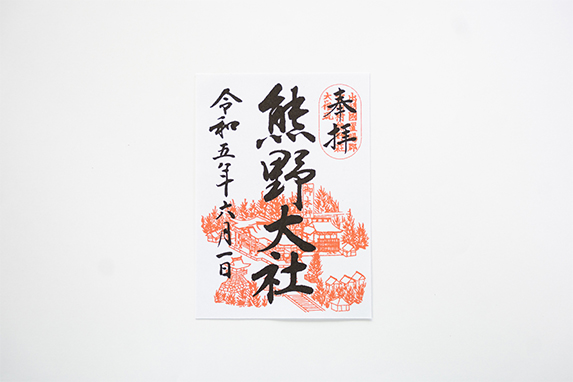 奉拝
熊野大社
令和五年六月一日